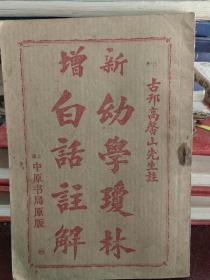 古邗高馨山先生註
新增
幼學瓊林
白話註解
中原书局原版